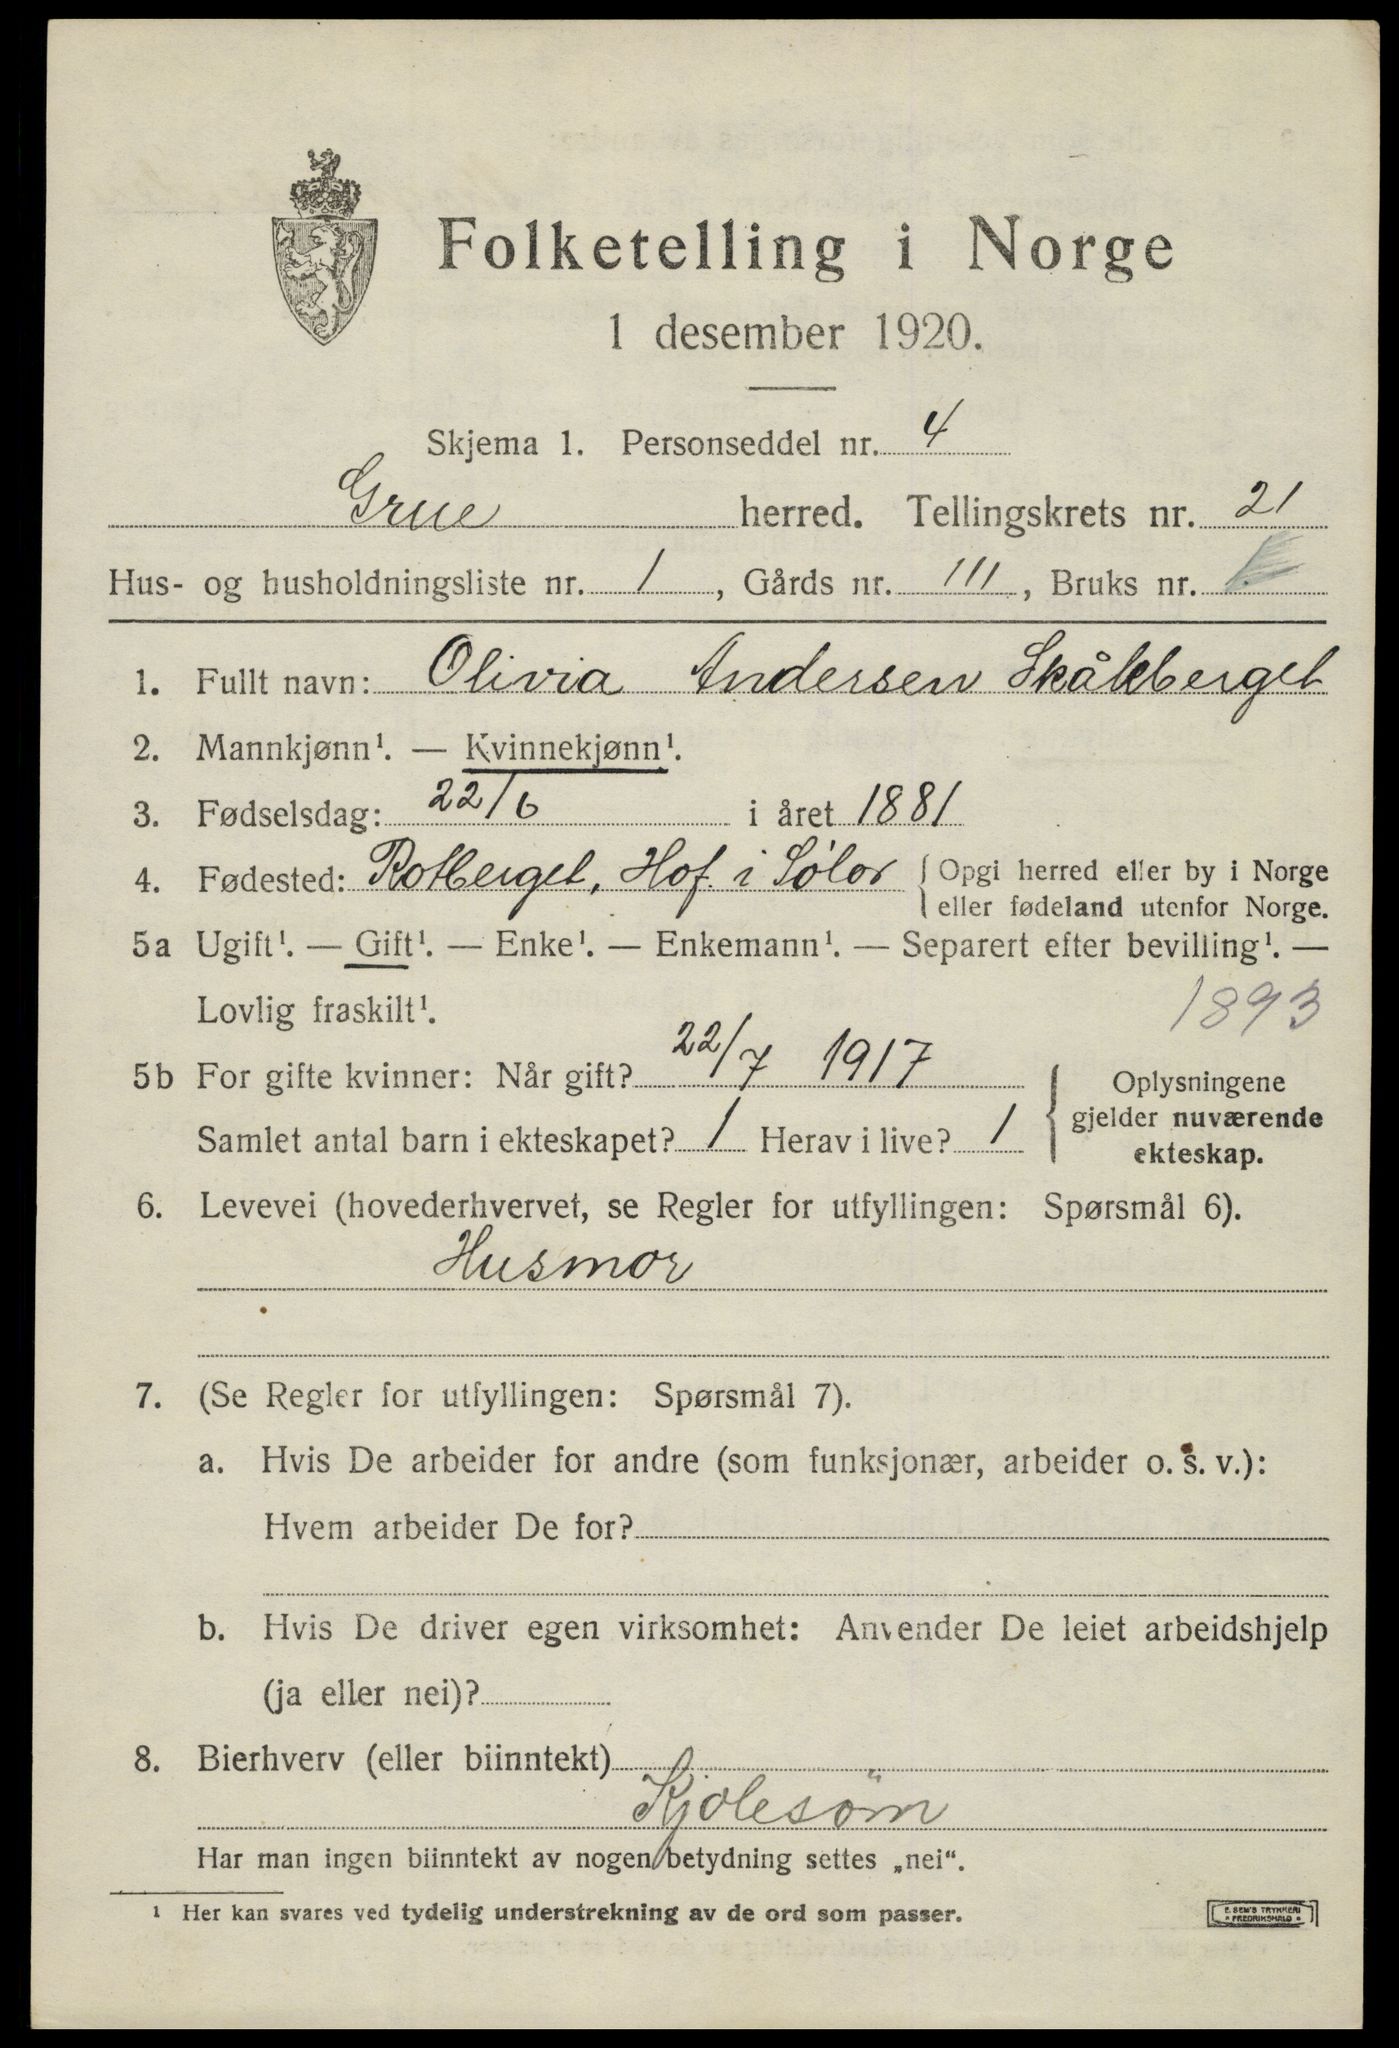 Folketelling i Norge
1 desember 1920.
Skjema 1. Personseddel nr. 4
Grue herred. Tellingskrets nr. 21
Hus- og husholdningsliste nr. 1, Gårds nr. 111, Bruks nr.
1. Fullt navn: Olivia Andersen Skålberget
2. Mannkjønn¹. — Kvinnekjønn¹.
3. Fødselsdag: 22/6 i året 1881
4. Fødested: Rotberget, Hof i Sólør { Opgi herred eller by i Norge
eller fødeland utenfor Norge.
5a Ugift¹. — Gift¹. — Enke¹. — Enkemann¹. — Separert efter bevilling¹. —
Lovlig fraskilt¹. 1893
5b For gifte kvinner: Når gift? 22/7 1917
Samlet antal barn i ekteskapet? 1 Herav i live? 1
{ Oplysningene
gjelder nuværende
ekteskap.
6. Levevei (hovederhvervet, se Regler for utfyllingen: Spørsmål 6).
Husmor
7. (Se Regler for utfyllingen: Spørsmål 7).
a. Hvis De arbeider for andre (som funksjonær, arbeider o. s. v.):
Hvem arbeider De for?
b. Hvis De driver egen virksomhet: Anvender De leiet arbeidshjelp
(ja eller nei)?
8. Bierhverv (eller biinntekt)
Kjolesöm
Har man ingen biinntekt av nogen betydning settes „nei“.
¹ Her kan svares ved tydelig understrekning av de ord som passer.
E. SEM'S TRYKKERI
FREDRIKSHALD